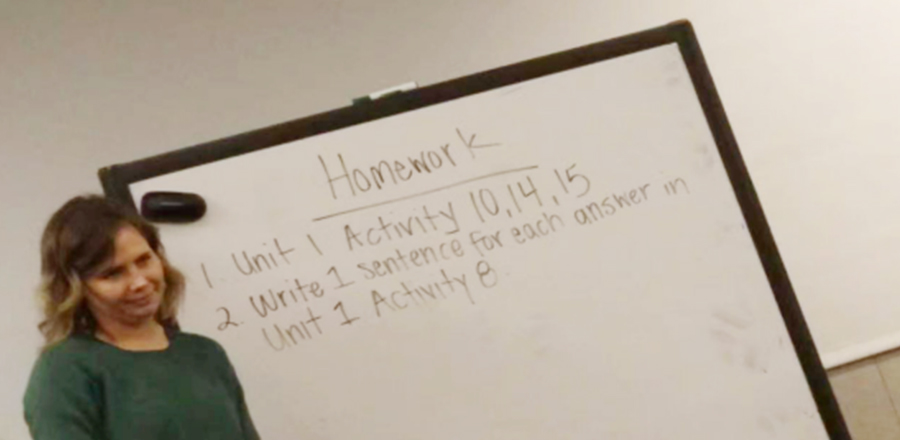 Homework
1. Unit 1 Activity 10, 14, 15
2. Write 1 sentence for each answer in
Unit 1 Activity 8